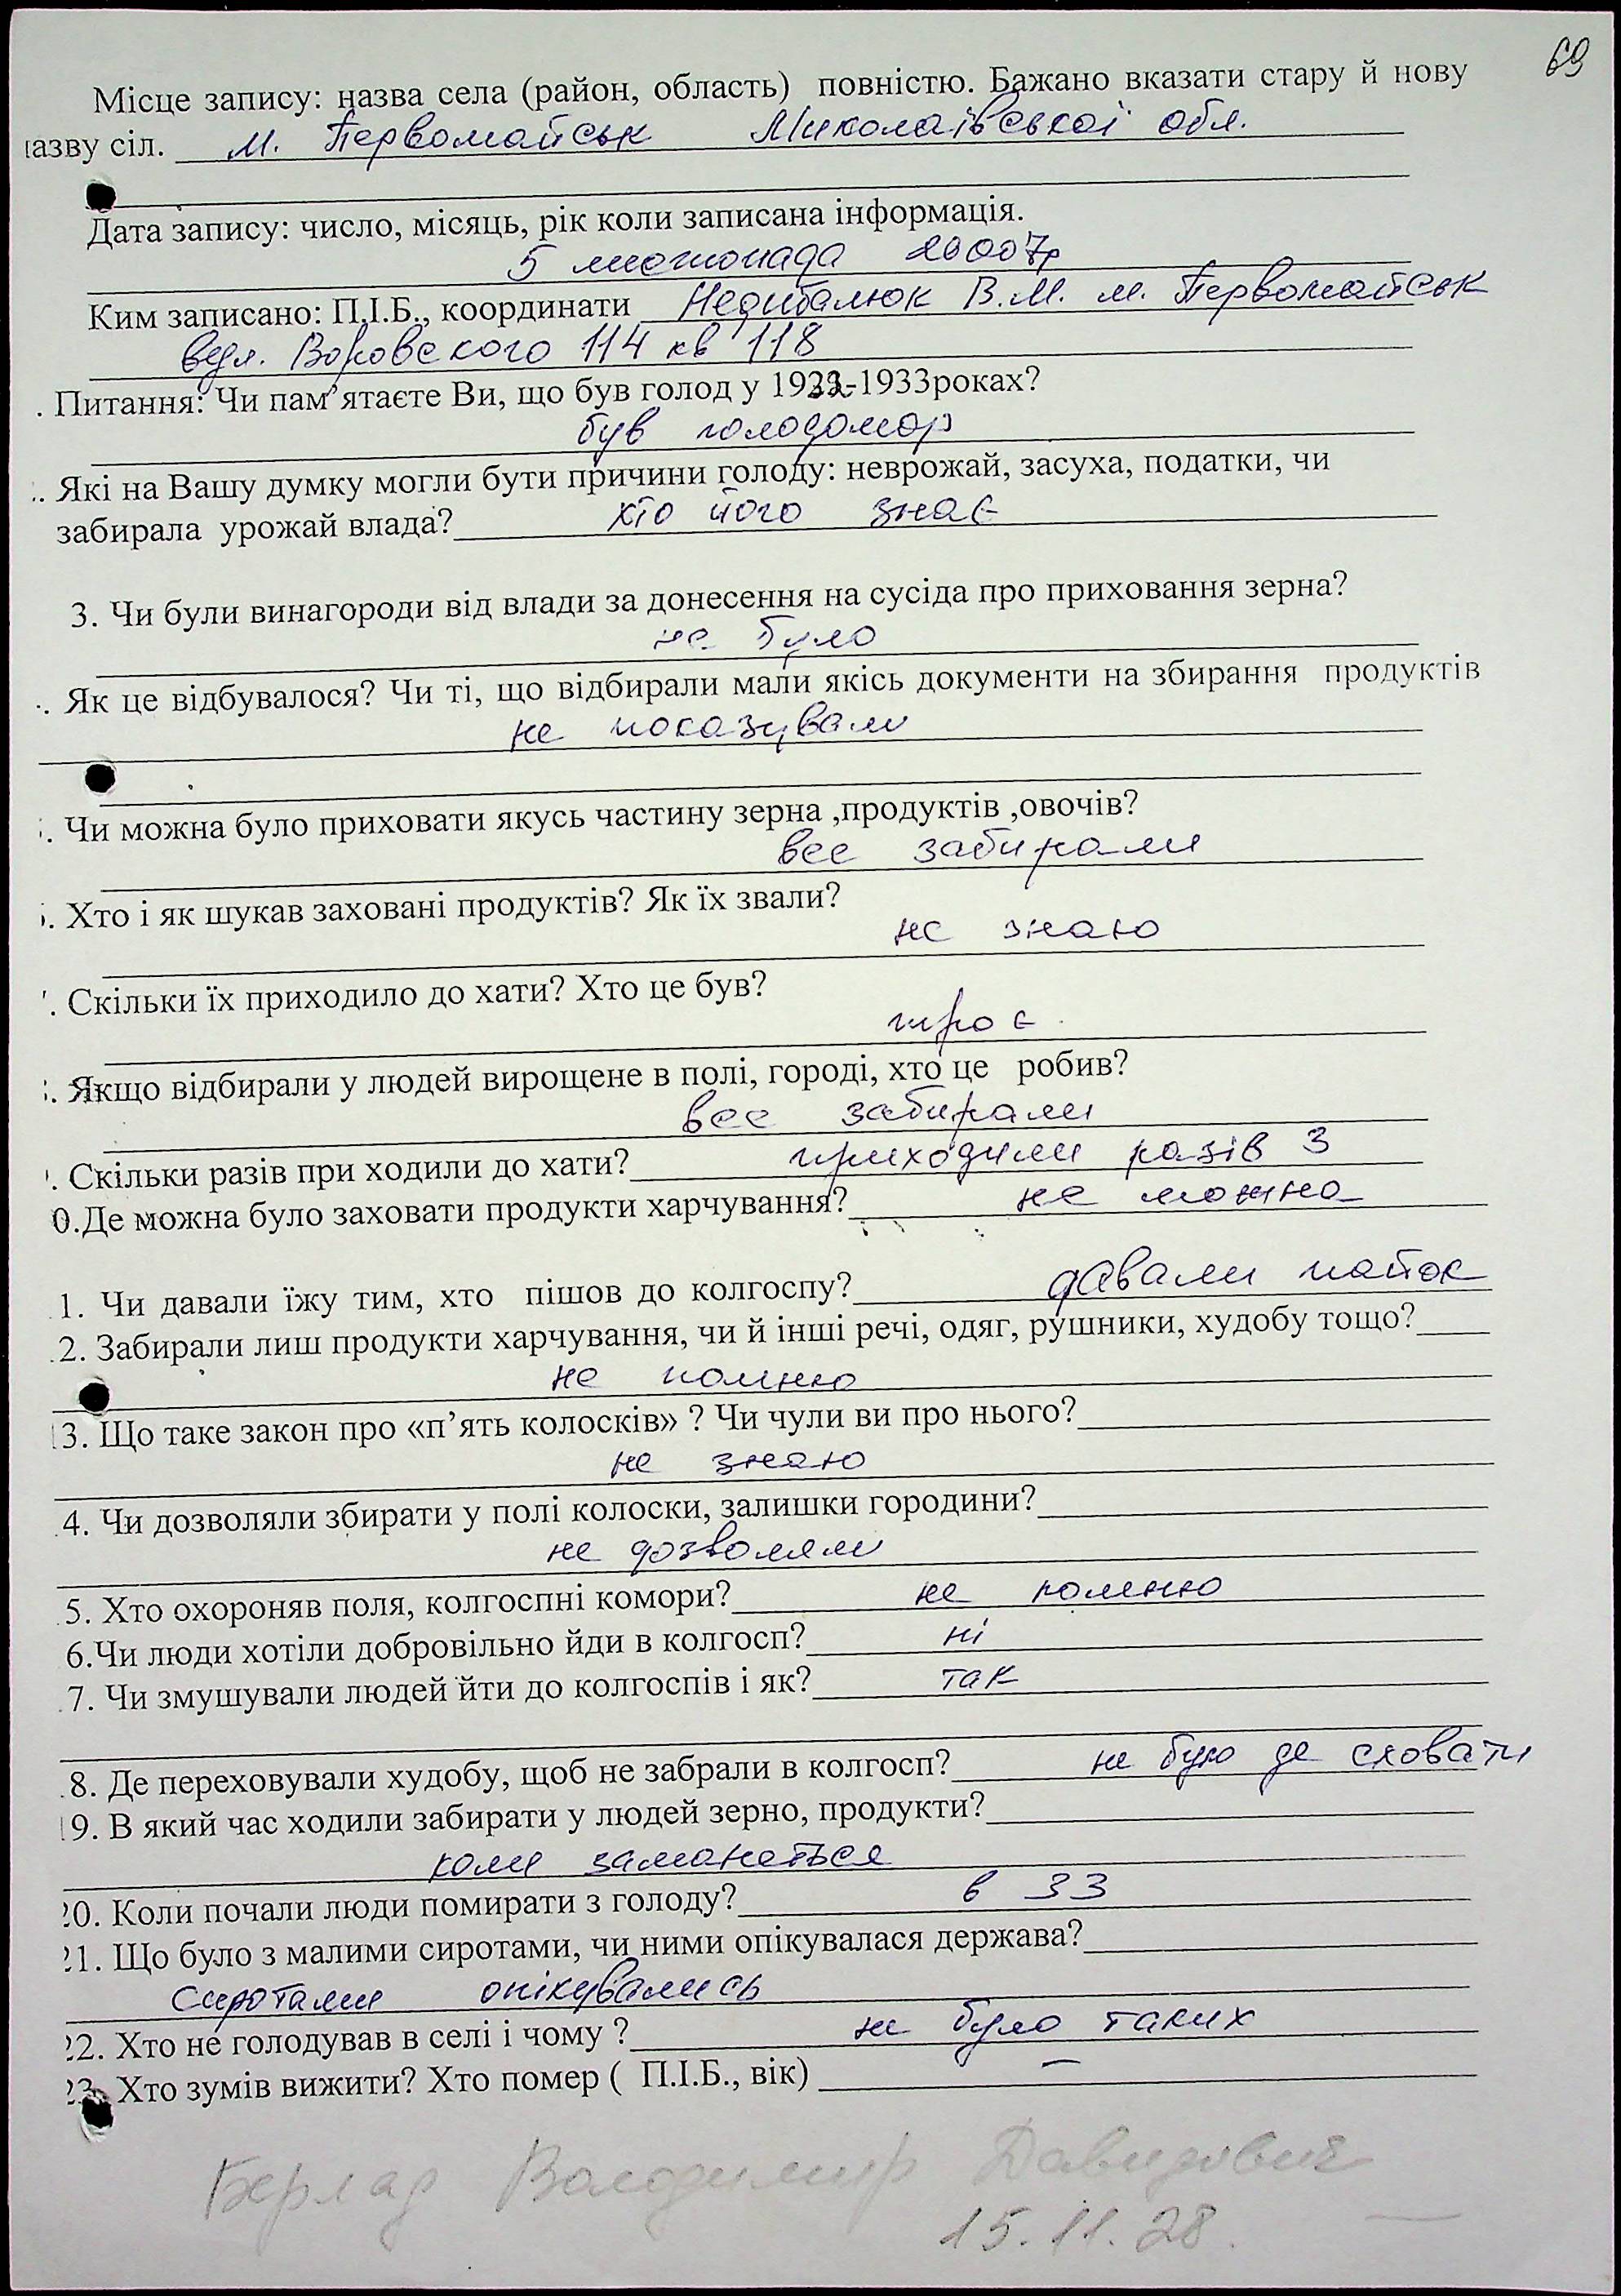 69
Місце запису: назва села (район, область) повністю. Бажано вказати стару й нову
назву сіл. м. Первомайськ Миколаївської обл.
Дата запису: число, місяць, рік коли записана інформація.
5 листопада 2007р
Ким записано: П.І.Б., координати Недибалюк В.М. м. Первомайськ
вул. Воровского 114 кв 118
. Питання: Чи пам’ятаєте Ви, що був голод у 1932-1933роках?
був голодомор
. Які на Вашу думку могли бути причини голоду: неврожай, засуха, податки, чи
забирала урожай влада? хто його знає
3. Чи були винагороди від влади за донесення на сусіда про приховання зерна?
не було
. Як це відбувалося? Чи ті, що відбирали мали якісь документи на збирання продуктів
не показували
. Чи можна було приховати якусь частину зерна ,продуктів ,овочів?
все забирали
. Хто і як шукав заховані продуктів? Як їх звали?
не знаю
. Скільки їх приходило до хати? Хто це був?
троє
. Якщо відбирали у людей вирощене в полі, городі, хто це робив?
все забирали
. Скільки разів при ходили до хати? приходили разів 3
0.Де можна було заховати продукти харчування? не можна
1. Чи давали їжу тим, хто пішов до колгоспу? давали пайок
2. Забирали лиш продукти харчування, чи й інші речі, одяг, рушники, худобу тощо?
не помню
13. Що таке закон про «п’ять колосків» ? Чи чули ви про нього?
не знаю
4. Чи дозволяли збирати у полі колоски, залишки городини?
не дозволяли
5. Хто охороняв поля, колгоспні комори? не помню
6.Чи люди хотіли добровільно йди в колгосп? ні
7. Чи змушували людей йти до колгоспів і як? так
8. Де переховували худобу, щоб не забрали в колгосп? не було де сховати
19. В який час ходили забирати у людей зерно, продукти?
коли заманеться
20. Коли почали люди помирати з голоду? в 33
21. Що було з малими сиротами, чи ними опікувалася держава?
Сиротами опікувались
22. Хто не голодував в селі і чому ? не було таких
23. Хто зумів вижити? Хто помер ( П.І.Б., вік) —
Берлад Володимир Давидович
15.11.28.